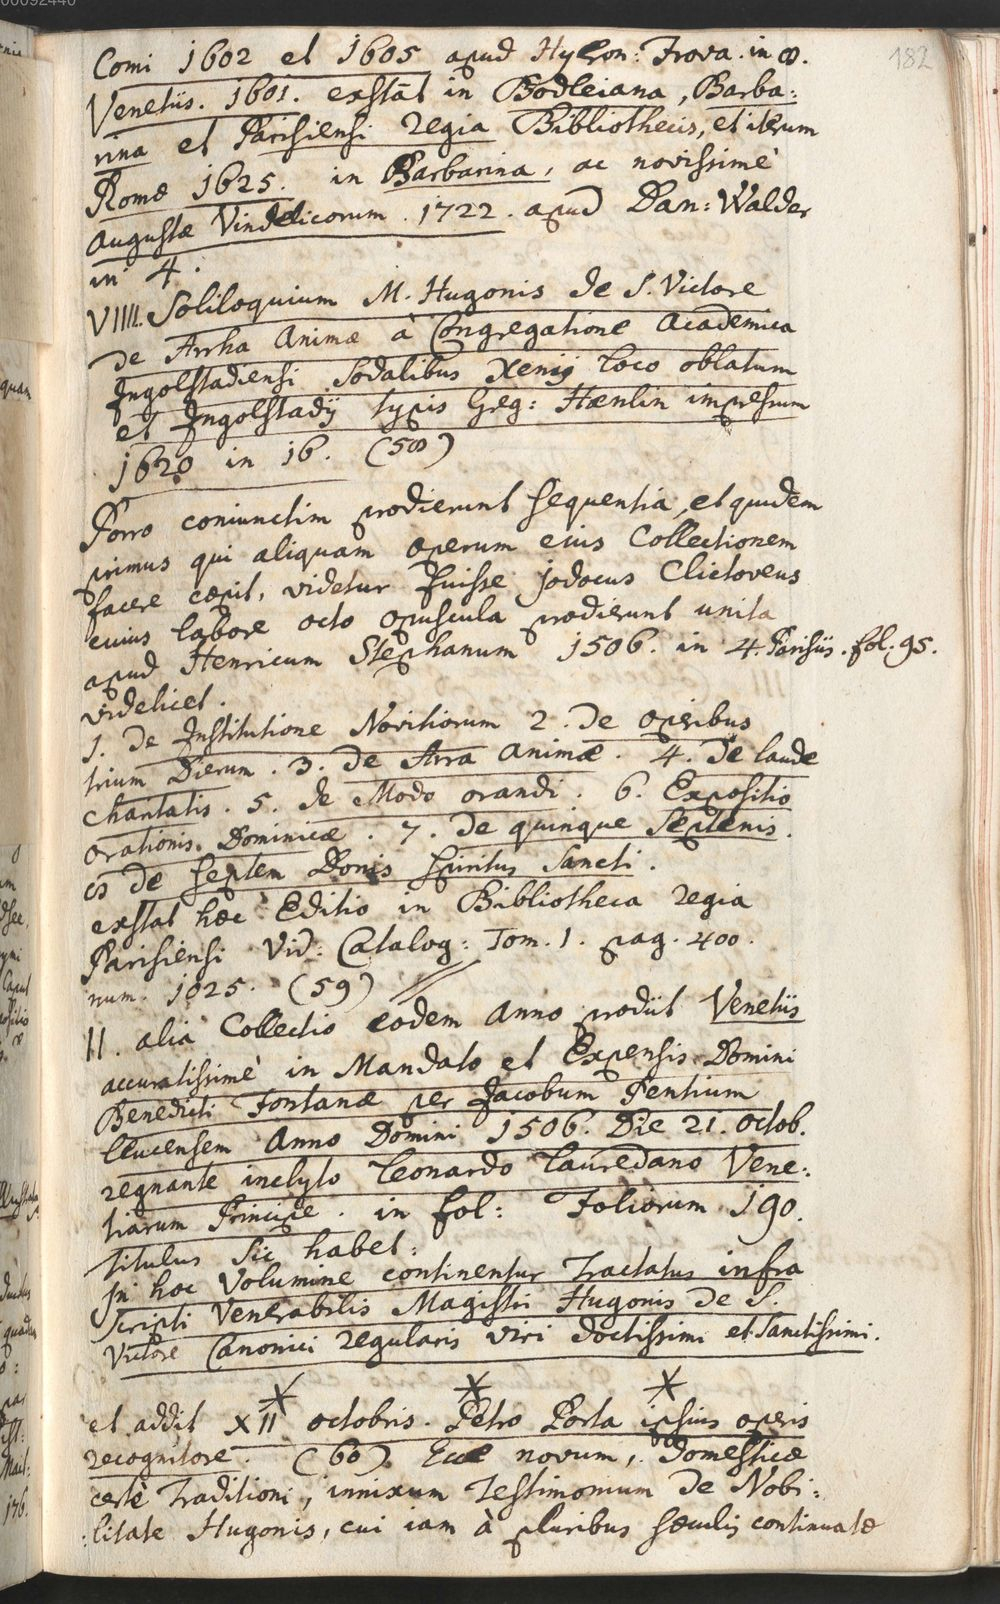 182
Comi 1602 et 1605 apud Hyeron: Frova. in 8.
Venetiis. 1601. exstat in Bodleiana, Barba:
rina et Parisiensi Regia Bibliothecis, et iterum
Romæ 1625. in Barbarina, ac novissimè
Augustæ Vindelicorum. 1722. apud Dan: Walder
in 4.
VIIII. Soliloquium M. Hugonis de S. Victore
de Arrha Animæ à Congregatione Academica
Ingolstadiensi Sodalibus Xenij Loco oblatum
et Ingolstadij typis Greg: Hænlin impressum
1620 in 16. (58)
Porro coniunctim prodierunt sequentia, et quidem
primus qui aliquam operum eius Collectionem
facere cœpit, videtur fuisse jodocus Clictoveus
cuius labore octo opuscula prodierunt unita
apud Henricum Stephanum 1506. in 4. Parisiis. fol. 95.
videlicet.
1. de Institutione Novitiorum 2. de operibus
trium Dierum. 3. de Arra Animæ. 4. de laude
charitatis. 5. de Modo orandi. 6. Expositio
orationis Dominicæ. 7. de quinque Septenis.
8 de septem Donis spiritus Sancti.
exstat hæc Editio in Bibliotheca regia
Parisiensi Vid: Catalog: Tom. 1. pag. 400.
num. 1025. (59)
II. alia Collectio eodem Anno prodiit Venetiis
accuratissimè in Mandato et Expensis Domini
Benedicti Fontanæ per Jacobum Pentium
Leucensem Anno Domini 1506. Die 21. octob.
regnante inclyto Leonardo Lauredano Vene:
tiarum Principe. in fol: Foliorum 190.
titulus sic habet:
In hoc Volumine continentur Tractatus infra
Scripti Venerabilis Magistri Hugonis de S.
Victore Canonici regularis viri doctissimi et Sanctissimi.
et addit XII octobris. Petro Porta ipsius operis
recognitore. (60) Ecce novum, Domesticæ
certè Traditioni, innixum Testimonium de Nobi:
litate Hugonis, cui iam à pluribus sæculis continuatæ